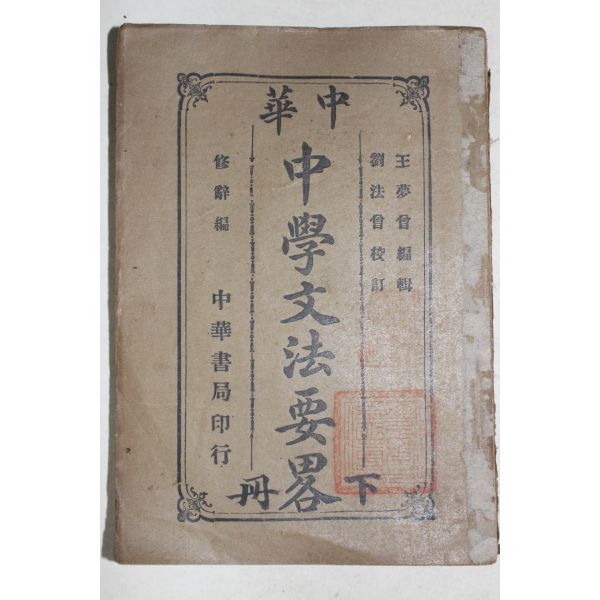 中華
王夢曾編輯
劉法曾校訂
中學文法要畧
修辭編
中華書局印行
下冊